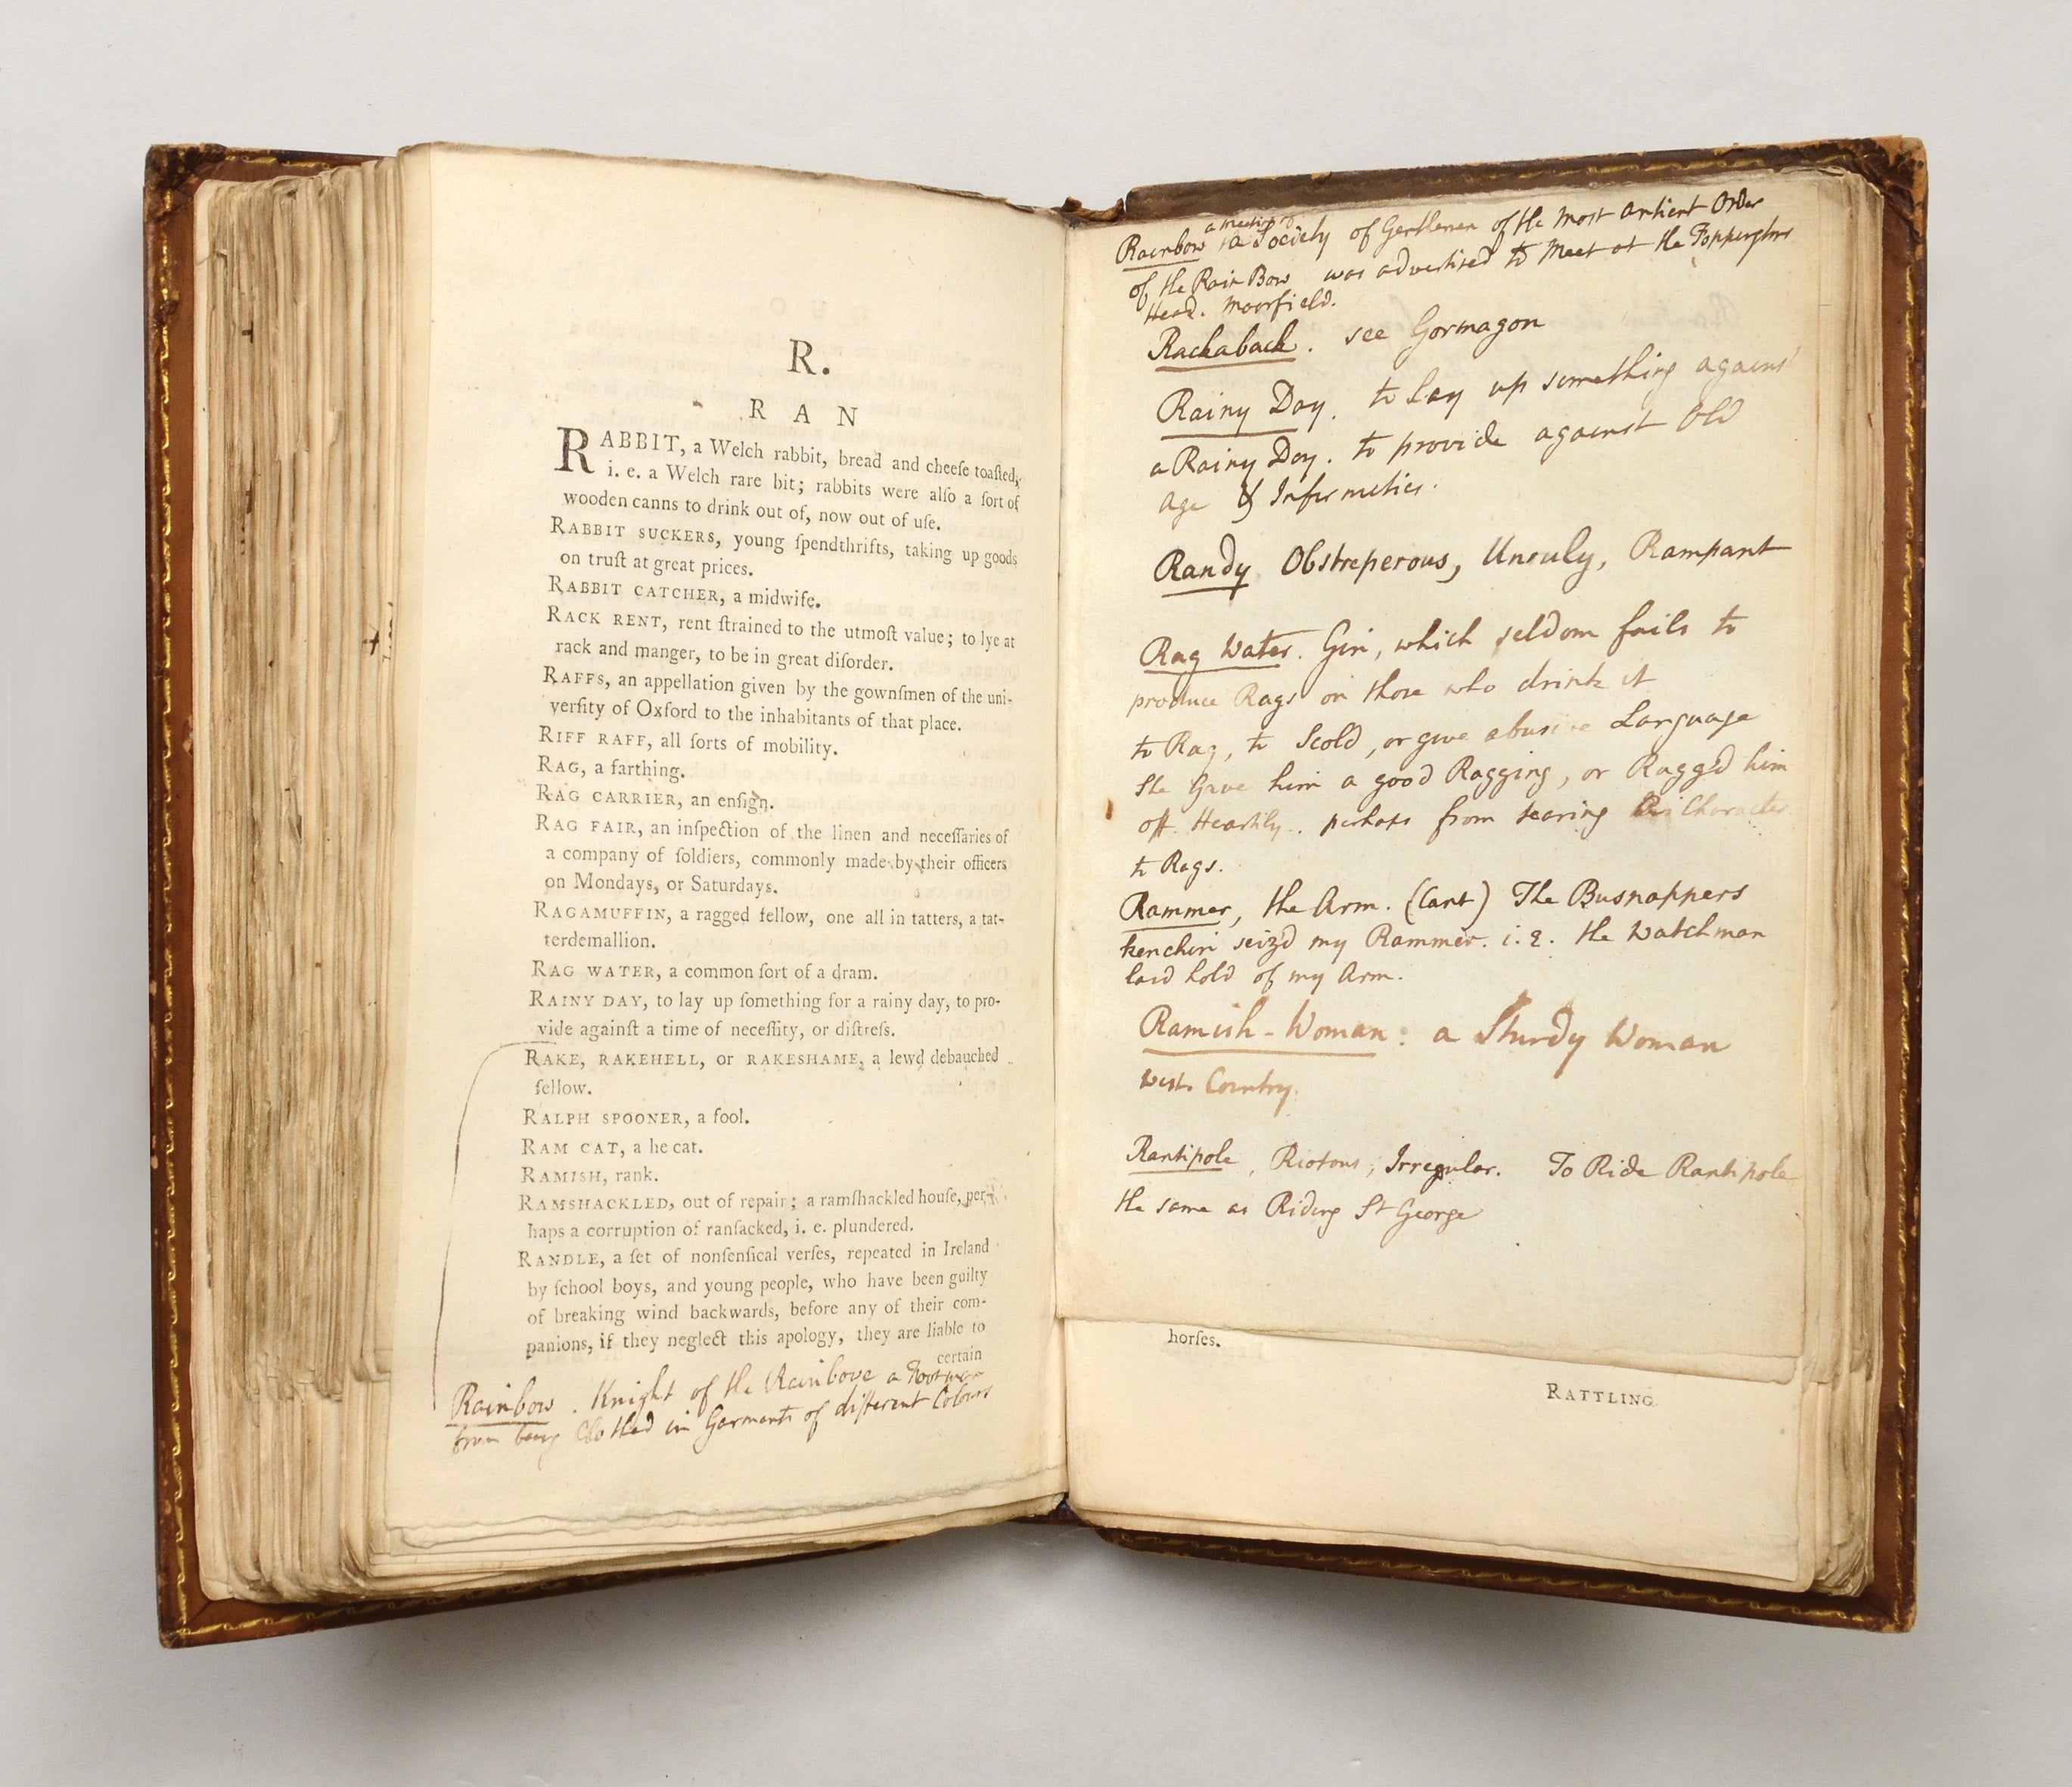 R.
R A N
RABBIT, a Welch rabbit, bread and cheeſe toaſted,
i. e. a Welch rare bit; rabbits were alſo a ſort of
wooden canns to drink out of, now out of uſe.
RABBIT SUCKERS, young ſpendthrifts, taking up goods
on truſt at great prices.
RABBIT CATCHER, a midwife.
RACK RENT, rent ſtrained to the utmoſt value; to lye at
rack and manger, to be in great diſorder.
RAFFS, an appellation given by the gownſmen of the uni-
verſity of Oxford to the inhabitants of that place.
RIFF RAFF, all ſorts of mobility.
RAG, a farthing.
RAG CARRIER, an enſign.
RAG FAIR, an inſpection of the linen and neceſſaries of
a company of ſoldiers, commonly made by their officers
on Mondays, or Saturdays.
RAGAMUFFIN, a ragged fellow, one all in tatters, a tat-
terdemallion.
RAG WATER, a common ſort of a dram.
RAINY DAY, to lay up ſomething for a rainy day, to pro-
vide againſt a time of neceſſity, or diſtreſs.
RAKE, RAKEHELL, or RAKESHAME, a lewd debauched
fellow.
RALPH SPOONER, a fool.
RAM CAT, a he cat.
RAMISH, rank.
RAMSHACKLED, out of repair; a ramſhackled houſe, per-
haps a corruption of ranſacked, i. e. plundered.
RANDLE, a ſet of nonſenſical verſes, repeated in Ireland
by ſchool boys, and young people, who have been guilty
of breaking wind backwards, before any of their com-
panions, if they neglect this apology, they are liable to
certain
Rainbow. Knight of the Rainbove a Footman
from being Clothed in Garments of different Colours
a meeting of
Rainbow a Society of Gentlemen of the Most Antient Order
of the Rain Bow was advertised to Meet at the
Head. Moorfield.
Rackaback. see Gormagon
Rainy Day. to Lay up something against
a Rainy Day. to provide against Old
Age & Infirmeties.
Randy Obstreperous, Unruly, Rampant
Rag Water. Gin, which seldom fails to
produce Rags on those who drink it
to Rag, to Scold, or give abusive Language
She Gave him a good Ragging, or Ragg'd him
off Heartily. perhaps from tearing his Character
to Rags.
Rammer, the Arm. (Cant) The Busnappers
kenchin seiz'd my Rammer. i. e. the Watchman
laid hold of my Arm.
Ramish-Woman: a Sturdy Woman
West Country.
Rantipole, Riotous, Irregular. To Ride Rantipole
the same as Riding St George
horſes.
RATTLING